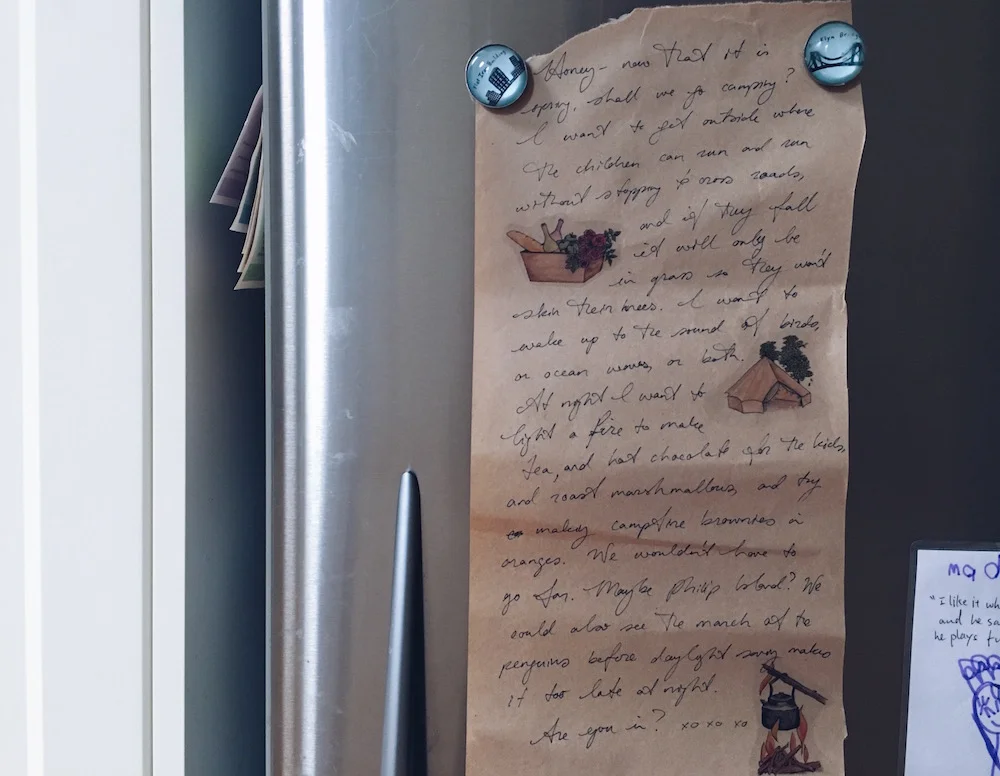 Honey - now that it is
spring, shall we go camping?
I want to get outside where
the children can run and run
without stopping to cross roads,
and if they fall
it will only be
in grass so they won't
skin their knees. I want to
wake up to the sound of birds,
or ocean waves, or both.
At night I want to
light a fire to make
tea, and hot chocolate for the kids,
and roast marshmallows, and try
making campfire brownies in
oranges. We wouldn't have to
go far. Maybe Philip Island? We
could also see the march of the
penguins before daylight saving makes
it too late at night.
Are you in? xo xo xo
"I like it wh
and he sa
he plays fu